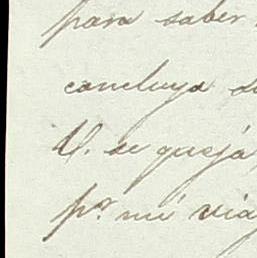 para saber
concluya
V. se queja
pr. mi